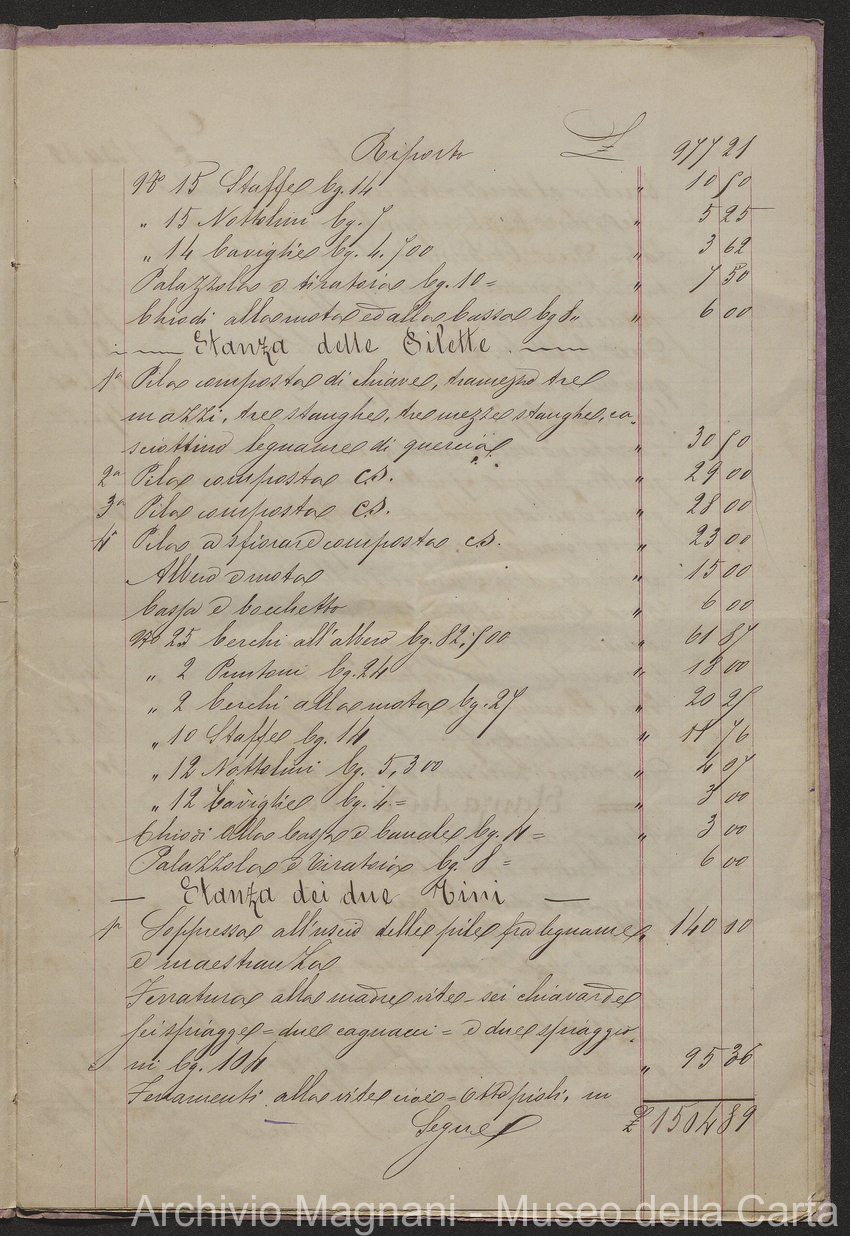 Riporto £ 977 21
No 15 Staffe Cg. 14 " 10 50
" 15 Nottolini Cg. 7 " 5 25
" 14 Caviglie Cg. 4,700 " 3 62
Palazzola e tiratoia Cg. 10 = " 7 50
Chiodi alla mota ed alla Cassa Cg 8 " " 6 00
Stanza delle Pilette
1a Pila composta di chiave, tramezzo tre
mazzi, tre stanghe, tre mezze stanghe, ca-
sciottino legname di quercia " 30 50
2a Pila composta C.S. " 29 00
3a Pila composta C.S. " 28 00
4 Pila a sfiorare composta C.S. " 23 00
Albero e mota " 15 00
Cassa e bocchetto " 6 00
No 25 Cerchi all'albero Cg. 82,500 " 61 87
" 2 Puntoni Cg. 24 " 18 00
" 2 Cerchi alla mota Cg. 27 " 20 25
" 10 Staffe Cg. 14 " 11 76
" 12 Nottolini Cg. 5,300 " 4 97
" 12 Caviglie Cg. 4 = " 3 00
Chiodi alla Cassa e Canale Cg. 4 = " 3 00
Palazzola e Tiratoia Cg. 8 = " 6 00
Stanza dei due Tini
1a Soppressa all'uscio delle pile fra legname " 140 10
e maestranza
Ferratura alla madre vite = sei chiavarde
sei spiagge = due cagnacci = e due spiaggio-
ni Cg. 104 " 95 36
Ferramenti alla vite cioè = Otto pioli, un
Segue £ 1504 89
Archivio Magnani - Museo della Carta